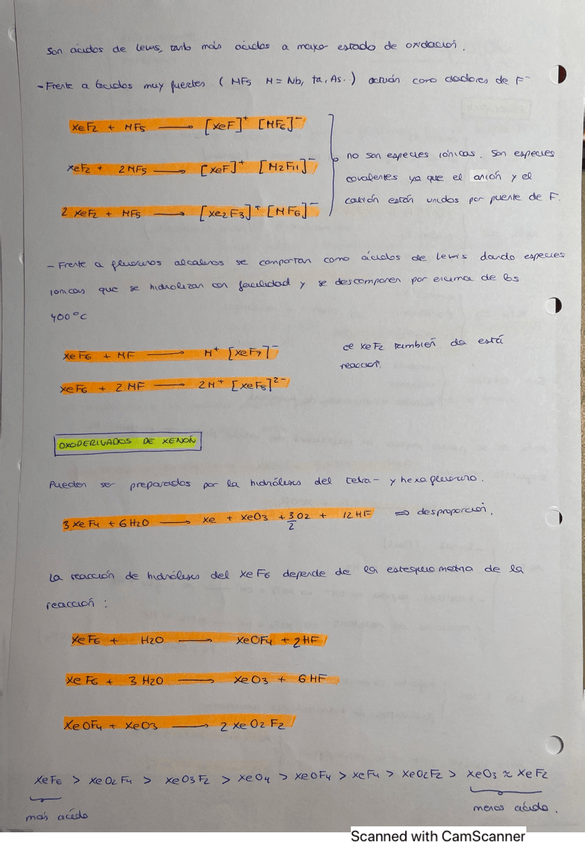 Son ácidos de Lewis, tanto más ácidos a mayor estado de oxidación.
- Frente a ácidos muy fuertes ( MF5 M = Nb, Ta, As. ) actúan como dadores de F⁻
XeF2 + MF5 → [XeF]⁺ [MF6]⁻
XeF2 + 2MF5 → [XeF]⁺ [M2F11]⁻
2 XeF2 + MF5 → [Xe2F3]⁺ [MF6]⁻
no son especies iónicas. Son especies
covalentes ya que el anión y el
catión están unidos por puente de F.
- Frente a fluoruros alcalinos se comportan como ácidos de Lewis dando especies
iónicas que se hidrolizan con facilidad y se descomponen por encima de los
400°C
XeF6 + MF → M⁺ [XeF7]⁻
XeF6 + 2 MF → 2M⁺ [XeF8]²⁻
el XeF2 también da está
reacción.
OXODERIVADOS DE XENÓN
Pueden ser preparados por la hidrólisis del tetra- y hexafluoruro.
3 XeF4 + 6H2O → Xe + XeO3 + 3/2 O2 + 12HF ⇒ desproporción.
La reacción de hidrólisis del XeF6 depende de la estequiometría de la
reacción :
XeF6 + H2O → XeOF4 + 2HF
XeF6 + 3 H2O → XeO3 + 6 HF
XeOF4 + XeO3 → 2 XeO2F2
XeF6 > XeO2F4 > XeO3F2 > XeO4 > XeOF4 > XeF4 > XeO2F2 > XeO3 ≈ XeF2
más ácido
menos ácido.
Scanned with CamScanner